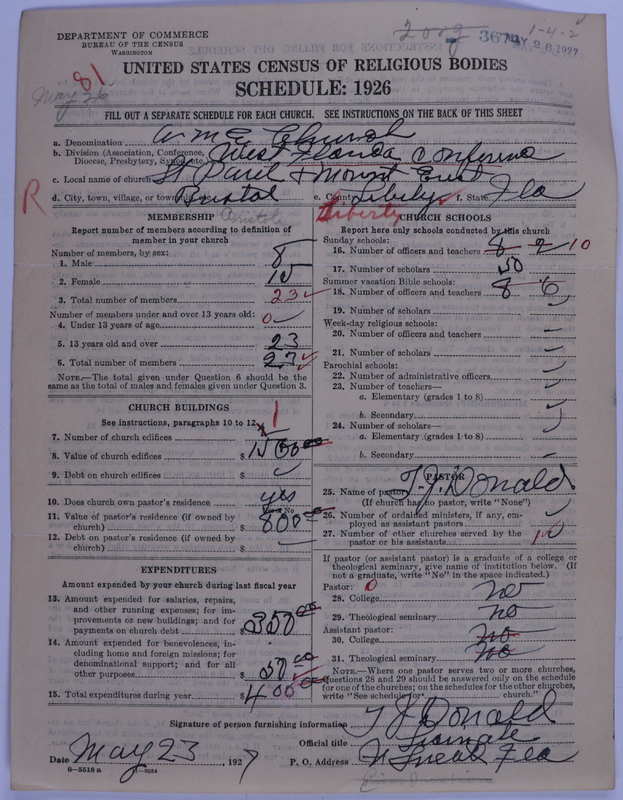 DEPARTMENT OF COMMERCE
BUREAU OF THE CENSUS
WASHINGTON
367
MAY 26 1927
1-4-2
81
May 26
UNITED STATES CENSUS OF RELIGIOUS BODIES
SCHEDULE: 1926
FILL OUT A SEPARATE SCHEDULE FOR EACH CHURCH. SEE INSTRUCTIONS ON THE BACK OF THIS SHEET
a. Denomination A. M. E. Church
b. Division (Association, Conference, West Florida Conference
Diocese, Presbytery, Synod, etc.)
c. Local name of church St Paul & Mount
d. City, town, village, or township Bristol e. County Liberty f. State Fla
R
Liberty
MEMBERSHIP
Report number of members according to definition of
member in your church
Number of members, by sex:
1. Male 8
2. Female 15
3. Total number of members 23
Number of members under and over 13 years old:
4. Under 13 years of age 0
5. 13 years old and over 23
6. Total number of members 23
NOTE.—The total given under Question 6 should be the
same as the total of males and females given under Question 3.
CHURCH BUILDINGS
See instructions, paragraphs 10 to 12
7. Number of church edifices 1
8. Value of church edifices $ 1500 00
9. Debt on church edifices $
10. Does church own pastor's residence yes
Yes or No
11. Value of pastor's residence (if owned by
church) $ 800 00
12. Debt on pastor's residence (if owned by
church) $
EXPENDITURES
Amount expended by your church during last fiscal year
13. Amount expended for salaries, repairs,
and other running expenses; for im-
provements or new buildings; and for
payments on church debt $ 350 00
14. Amount expended for benevolences, in-
cluding home and foreign missions; for
denominational support; and for all
other purposes $ 50 00
15. Total expenditures during year $ 400 00
CHURCH SCHOOLS
Report here only schools conducted by this church
Sunday schools:
16. Number of officers and teachers 8 2 10
17. Number of scholars 50
Summer vacation Bible schools:
18. Number of officers and teachers 8 6
19. Number of scholars
Week-day religious schools:
20. Number of officers and teachers
21. Number of scholars
Parochial schools:
22. Number of administrative officers
23. Number of teachers—
a. Elementary (grades 1 to 8)
b. Secondary
24. Number of scholars—
a. Elementary (grades 1 to 8)
b. Secondary
PASTOR
25. Name of pastor T. J. Donald
(If church has no pastor, write "None")
26. Number of ordained ministers, if any, em-
ployed as assistant pastors
27. Number of other churches served by the
pastor or his assistants
If pastor (or assistant pastor) is a graduate of a college or
theological seminary, give name of institution below. (If
not a graduate, write "No" in the space indicated.)
Pastor: 0
28. College no
29. Theological seminary no
Assistant pastor:
30. College no
31. Theological seminary no
NOTE.—Where one pastor serves two or more churches,
questions 28 and 29 should be answered only on the schedule
for one of the churches; on the schedules for the other churches,
write "See schedule for church."
Signature of person furnishing information T J Donald
Official title
Date May 23, 1927 P. O. Address Fla
8—5518 a